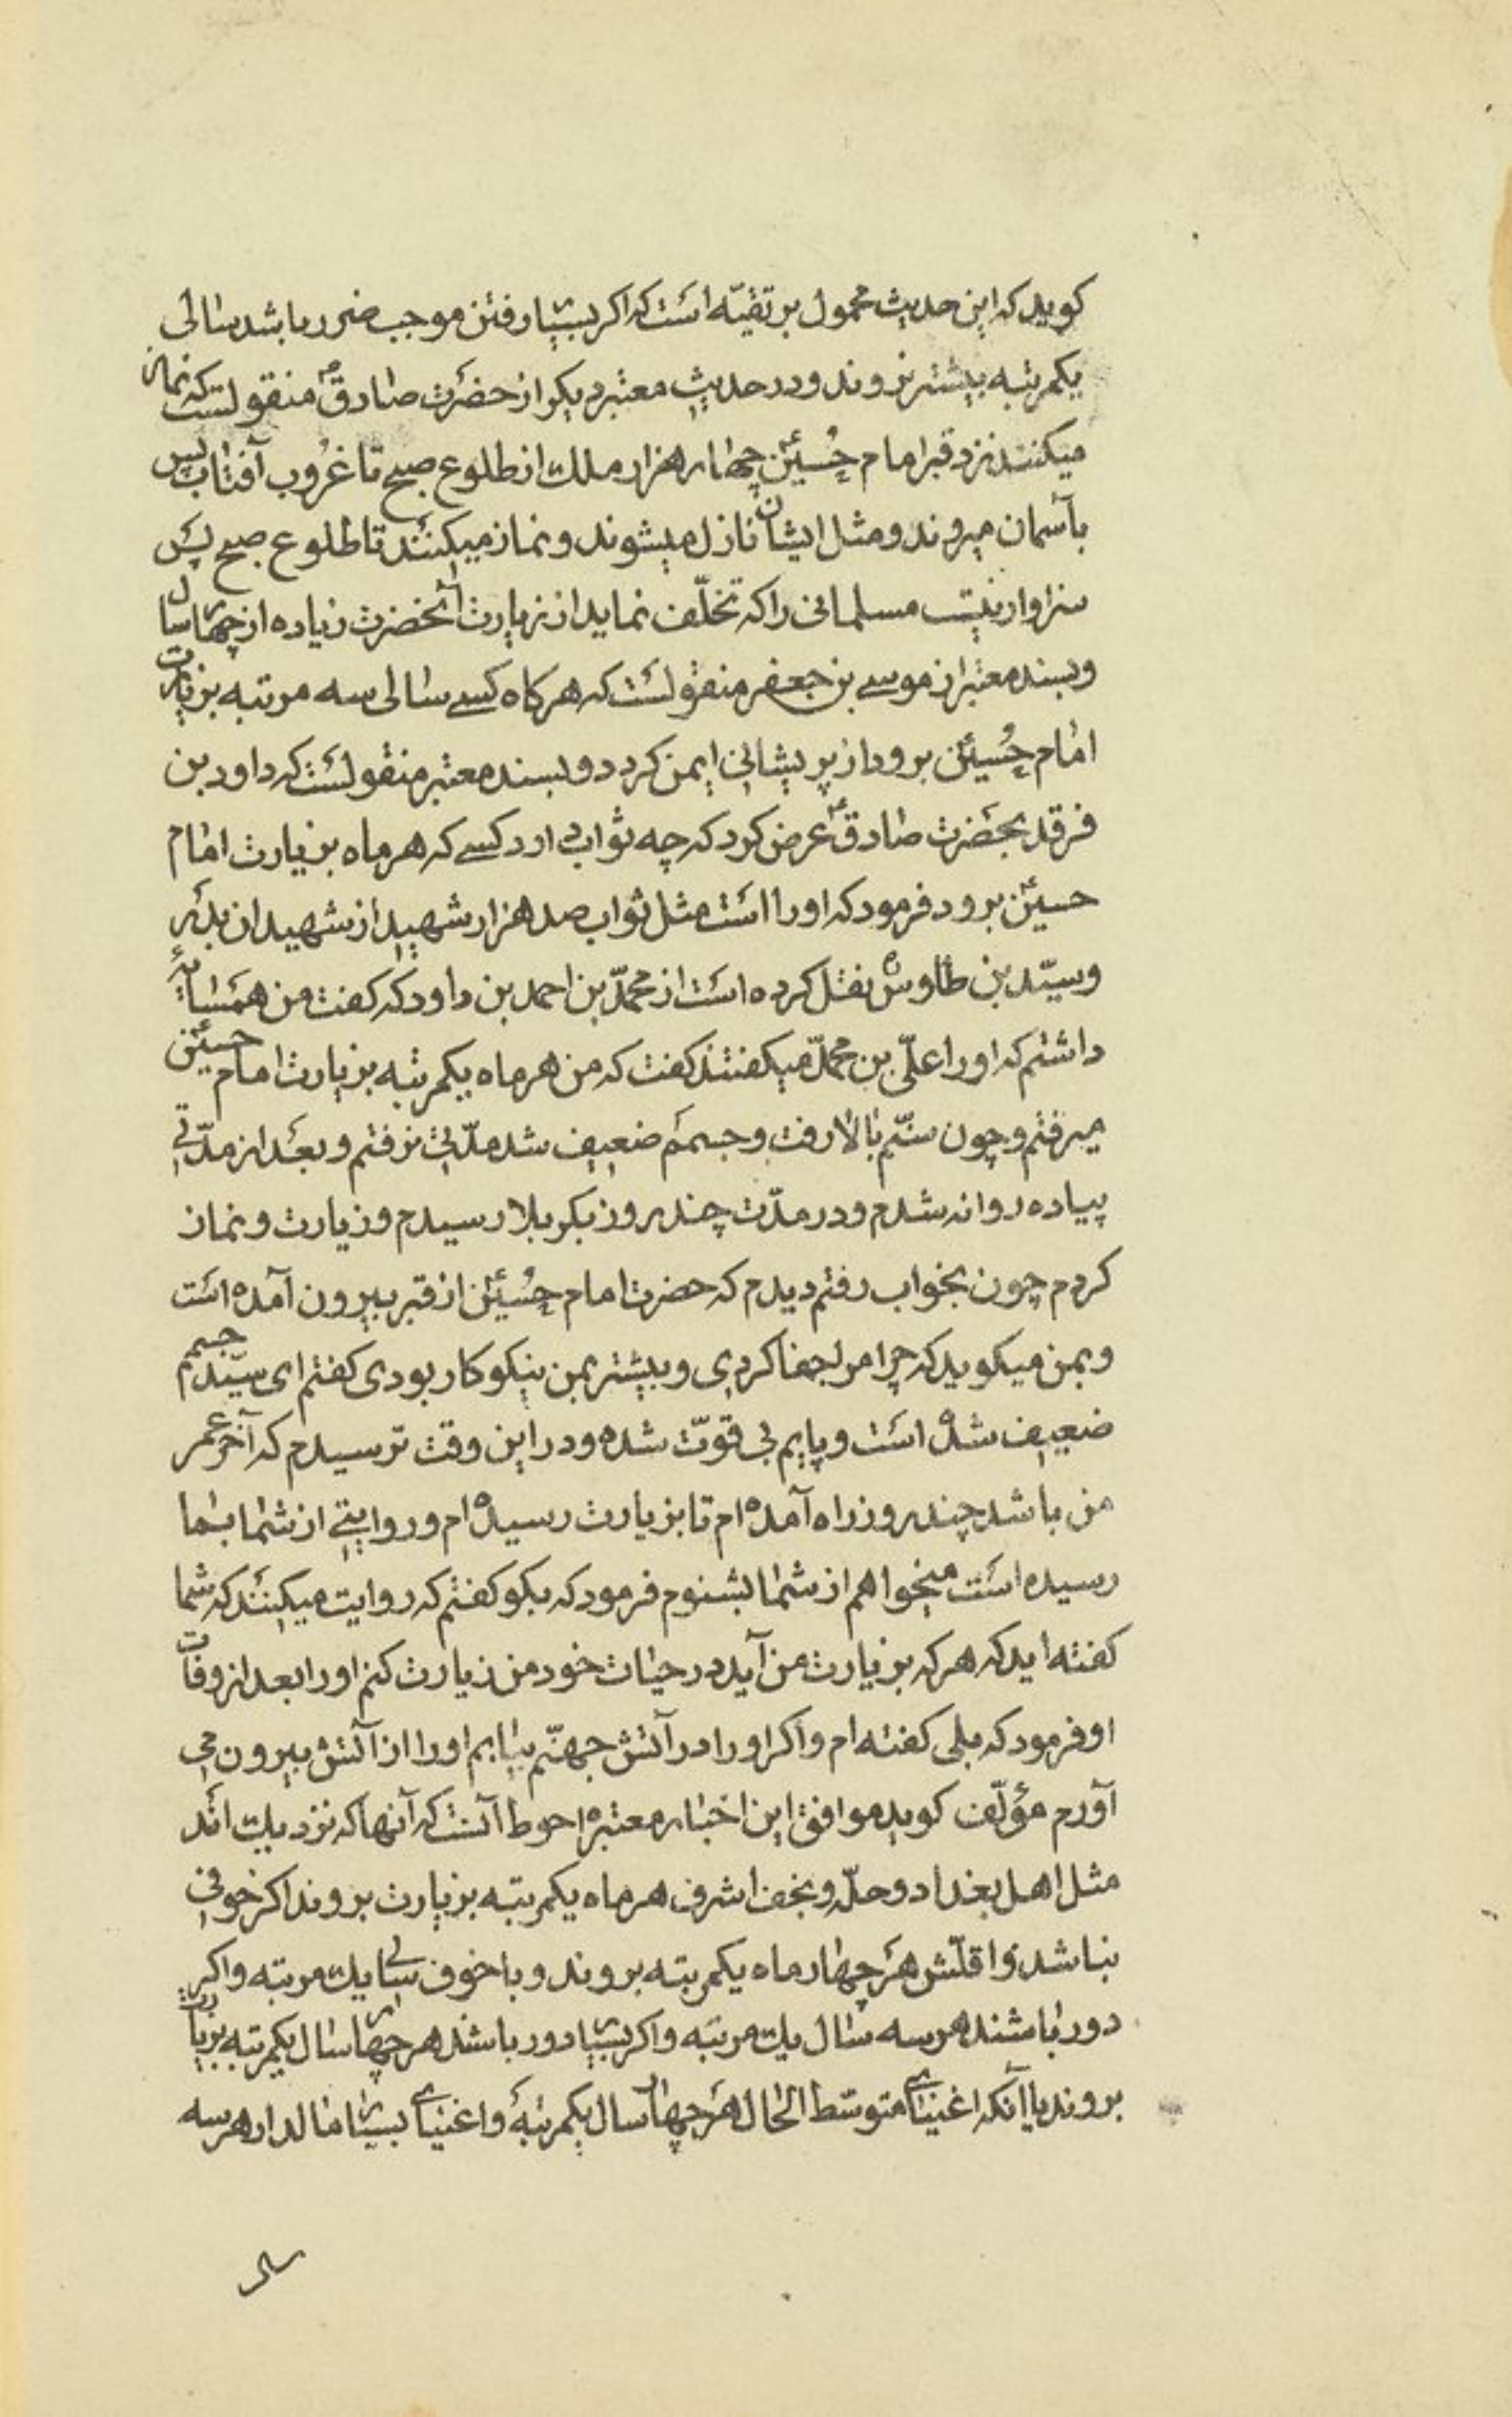 کوید که این حدیث محمول بر تقیّه است که اکر بسیار رفتن موجب ضرر باشد سالی
یکمرتبه بیشتر نروند و در حدیث معتبر دیکر از حضرت صادقؑ منقولست که نماز
میکنند نزد قبر امام حُسینؑ چهار هزار ملك از طلوع صبح تا غروب آفتاب پس
بآسمان میروند و مثل ایشان نازل میشوند و نماز میکنند تا طلوع صبح پس
سزاوار نیست مسلمانی را که تخلّف نماید از زیارت آنحضرت زیاده از چهار سال
و بسند معتبر از موسی بن جعفر منقولست که هرکاه کسی سالی سه مرتبه بزیارت
امام حُسینؑ برود از پریشانی ایمن کردد و بسند معتبر منقولست که داود بن
فرقد بحضرت صادقؑ عرض کرد که چه ثواب دارد کسی که هر ماه بزیارت امام
حسینؑ برود فرمود که او را است مثل ثواب صد هزار شهید از شهیدان بدر
و سیّد بن طاوس نقل کرده است از محمّد بن احمد بن داود که کفت من همسایهٔ
داشتم که او را علّی بن محمّد میکفتند کفت که من هر ماه یکمرتبه بزیارت امام حسینؑ
میرفتم و چون سنّم بالا رفت و جسمم ضعیف شد مدّتی نرفتم و بعد از مدّتی
پیاده روانه شدم و در مدّت چند روز بکربلا رسیدم و زیارت و نماز
کردم چون بخواب رفتم دیدم که حضرت امام حُسینؑ از قبر بیرون آمده است
و بمن میکوید که چرا مرا جفا کردی و بیشتر بمن نیکوکار بودی کفتم ای سیّد جسمم
ضعیف شده است و پایم بی قوّت شده و در این وقت ترسیدم که آخر عمر
من باشد چند روز راه آمده ام تا بزیارت رسیده ام و روایتی از شما بما
رسیده است میخواهم از شما بشنوم فرمود که بکو کفتم که روایت میکنند که شما
کفته اید که هر که بزیارت من آید در حیات خود من زیارت کنم او را بعد از وفات
او فرمود که بلی کفته ام و اکر او را در آتش جهنّم بیابم او را از آتش بیرون می
آورم مؤلّف کوید موافق این اخبار معتبره احوط آنست که آنها که نزدیك اند
مثل اهل بغداد و حلّه و نجف اشرف هر ماه یکمرتبه بزیارت بروند اکر خوفی
نباشد و اقلّش هر چهار ماه یکمرتبه بروند و با خوف سالی یك مرتبه و اکر
دور باشند هر سه سال یك مرتبه و اکر بسیار دور باشد هر چهار سال یکمرتبه بزیارت
بروند یا آنکه اغنیای متوسّط الحال هر چهار سال یکمرتبه و اغنیای بسیار مالدار هر سه
سال